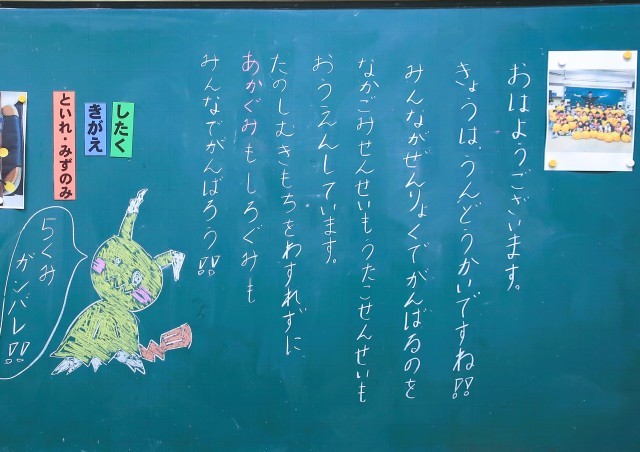 おはようございます。
きょうは、うんどうかいですね!!
みんながぜんりょくでがんばるのを
なかごみせんせいも、うたこせんせいも
おうえんしています。
たのしむきもちをわすれずに
あかぐみもしろぐみも
みんなでがんばろう!!
したく
きがえ
といれ・みずのみ
5くみ
ガンバレ!!